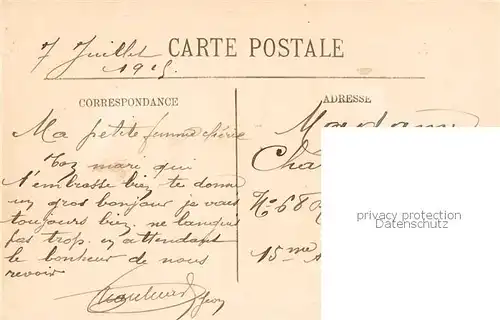 7 Juillet
1915
CARTE POSTALE
CORRESPONDANCE
ADRESSE
Ma petite femme chérie
Toz mari qui
t'embrasse biz te donne
uz gros bonjour je vais
toujours biz. ne languis
pas trop. en attendant
le bonheur de nous
revoir
Madame
Châ
No 68
15me
privacy protection
Datenschutz